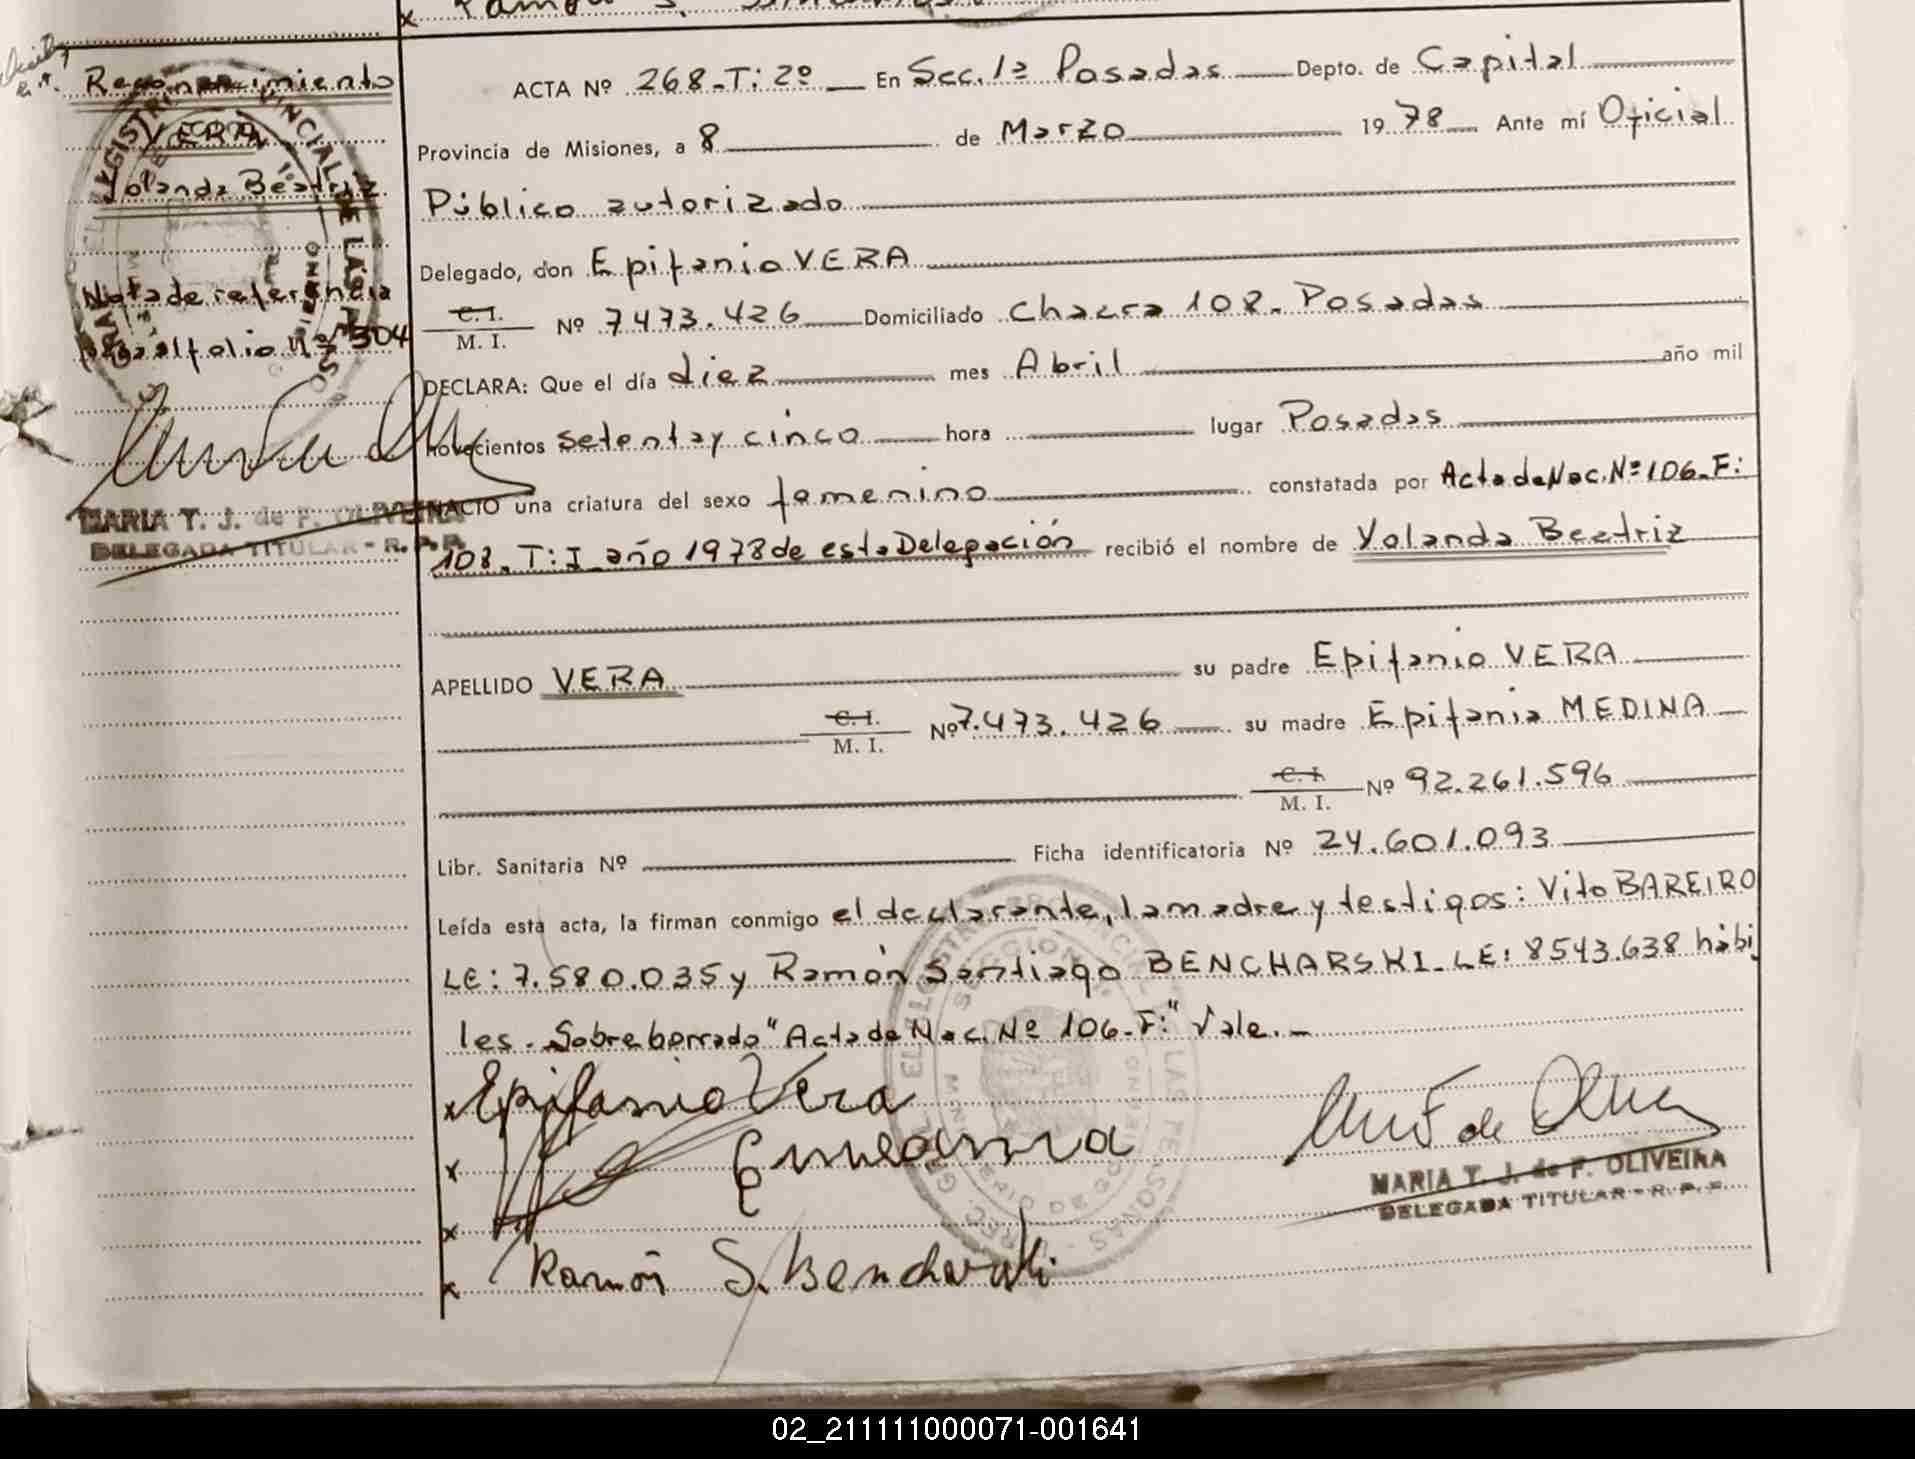 Reconocimiento
VERA
Yolanda Beatriz
Nota de referencia
pasa al folio Nº 304
MARIA T. J. de F. OLIVEIRA
DELEGADA TITULAR - R. P. P.
ACTA Nº 268-T: 2º En Sec. 1ª Posadas Depto. de Capital
Provincia de Misiones, a 8 de Marzo 19 78 Ante mí Oficial
Público autorizado
Delegado, don Epifanio VERA
C. I.
M. I. Nº 7473.426 Domiciliado Chacra 108. Posadas
DECLARA: Que el día diez mes Abril año mil
novecientos setenta y cinco hora lugar Posadas
NACIO una criatura del sexo femenino constatada por Acta de Nac. Nº 106-F:
108. T: I año 1978 de esta Delegación recibió el nombre de Yolanda Beatriz
APELLIDO VERA su padre Epifanio VERA
C. I.
M. I. Nº 7.473.426 su madre Epifania MEDINA
C. I.
M. I. Nº 92.261.596
Libr. Sanitaria Nº Ficha identificatoria Nº 24.601.093
Leída esta acta, la firman conmigo el declarante, la madre y testigos: Vito BAREIRO
LE: 7.580.035 y Ramón Santiago BENCHARSKI. LE: 8543.638 hábi
les. Sobreborrado "Acta de Nac. Nº 106-F:" Vale.-
x Epifanio Vera
x
x
x Ramón S. Bencharski
MARIA T. J. de F. OLIVEIRA
DELEGADA TITULAR - R. P. P.
02_211111000071-001641